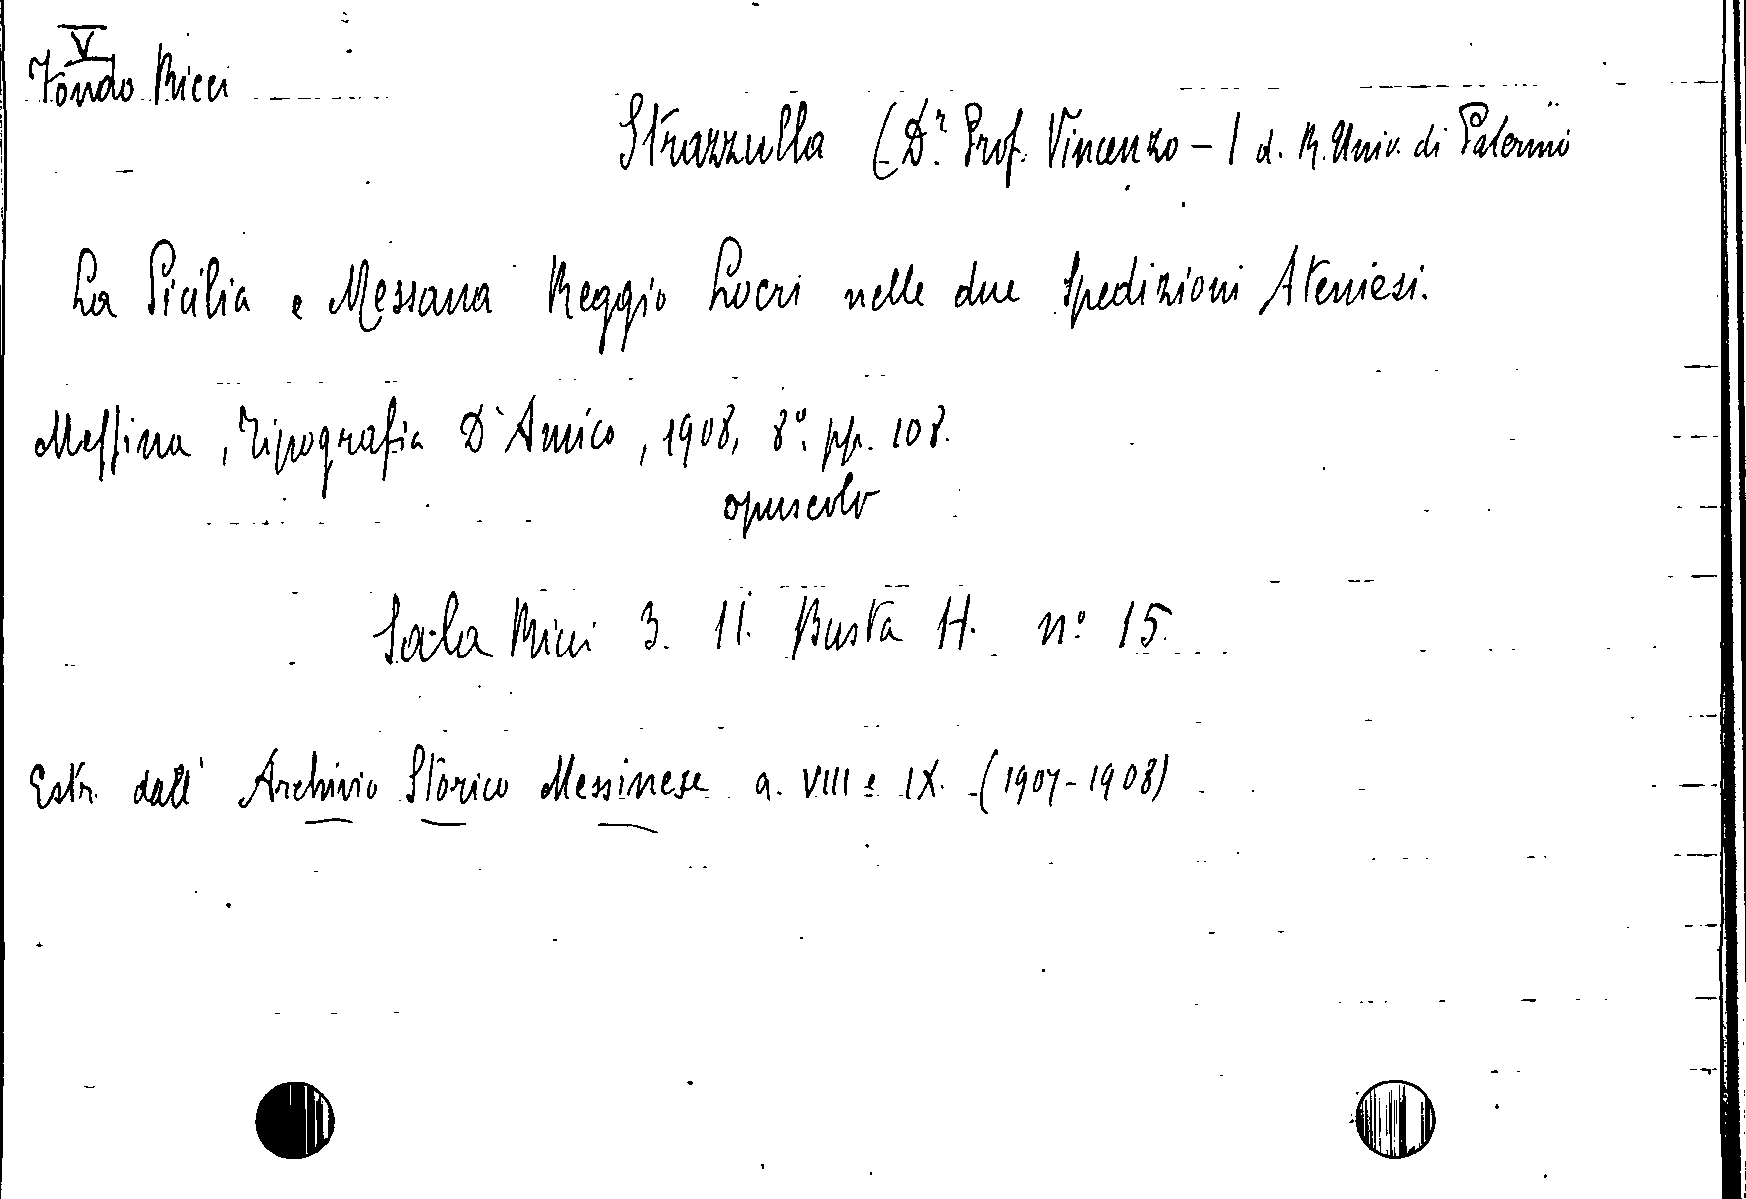 V
Fondo Ricci
Strazzulla (Dr. Prof. Vincenzo - / d. R. Univ. di Palermo
La Sicilia e Messana Reggio Locri nelle due spedizioni Ateniesi.
Messina, Tipografia D'Amico, 1908, 8º. pp. 108.
opuscolo
Sala Ricci 3. 11. Busta H. nº 15.
Estr. dall' Archivio Storico Messinese a. VIII e IX. (1907-1908)